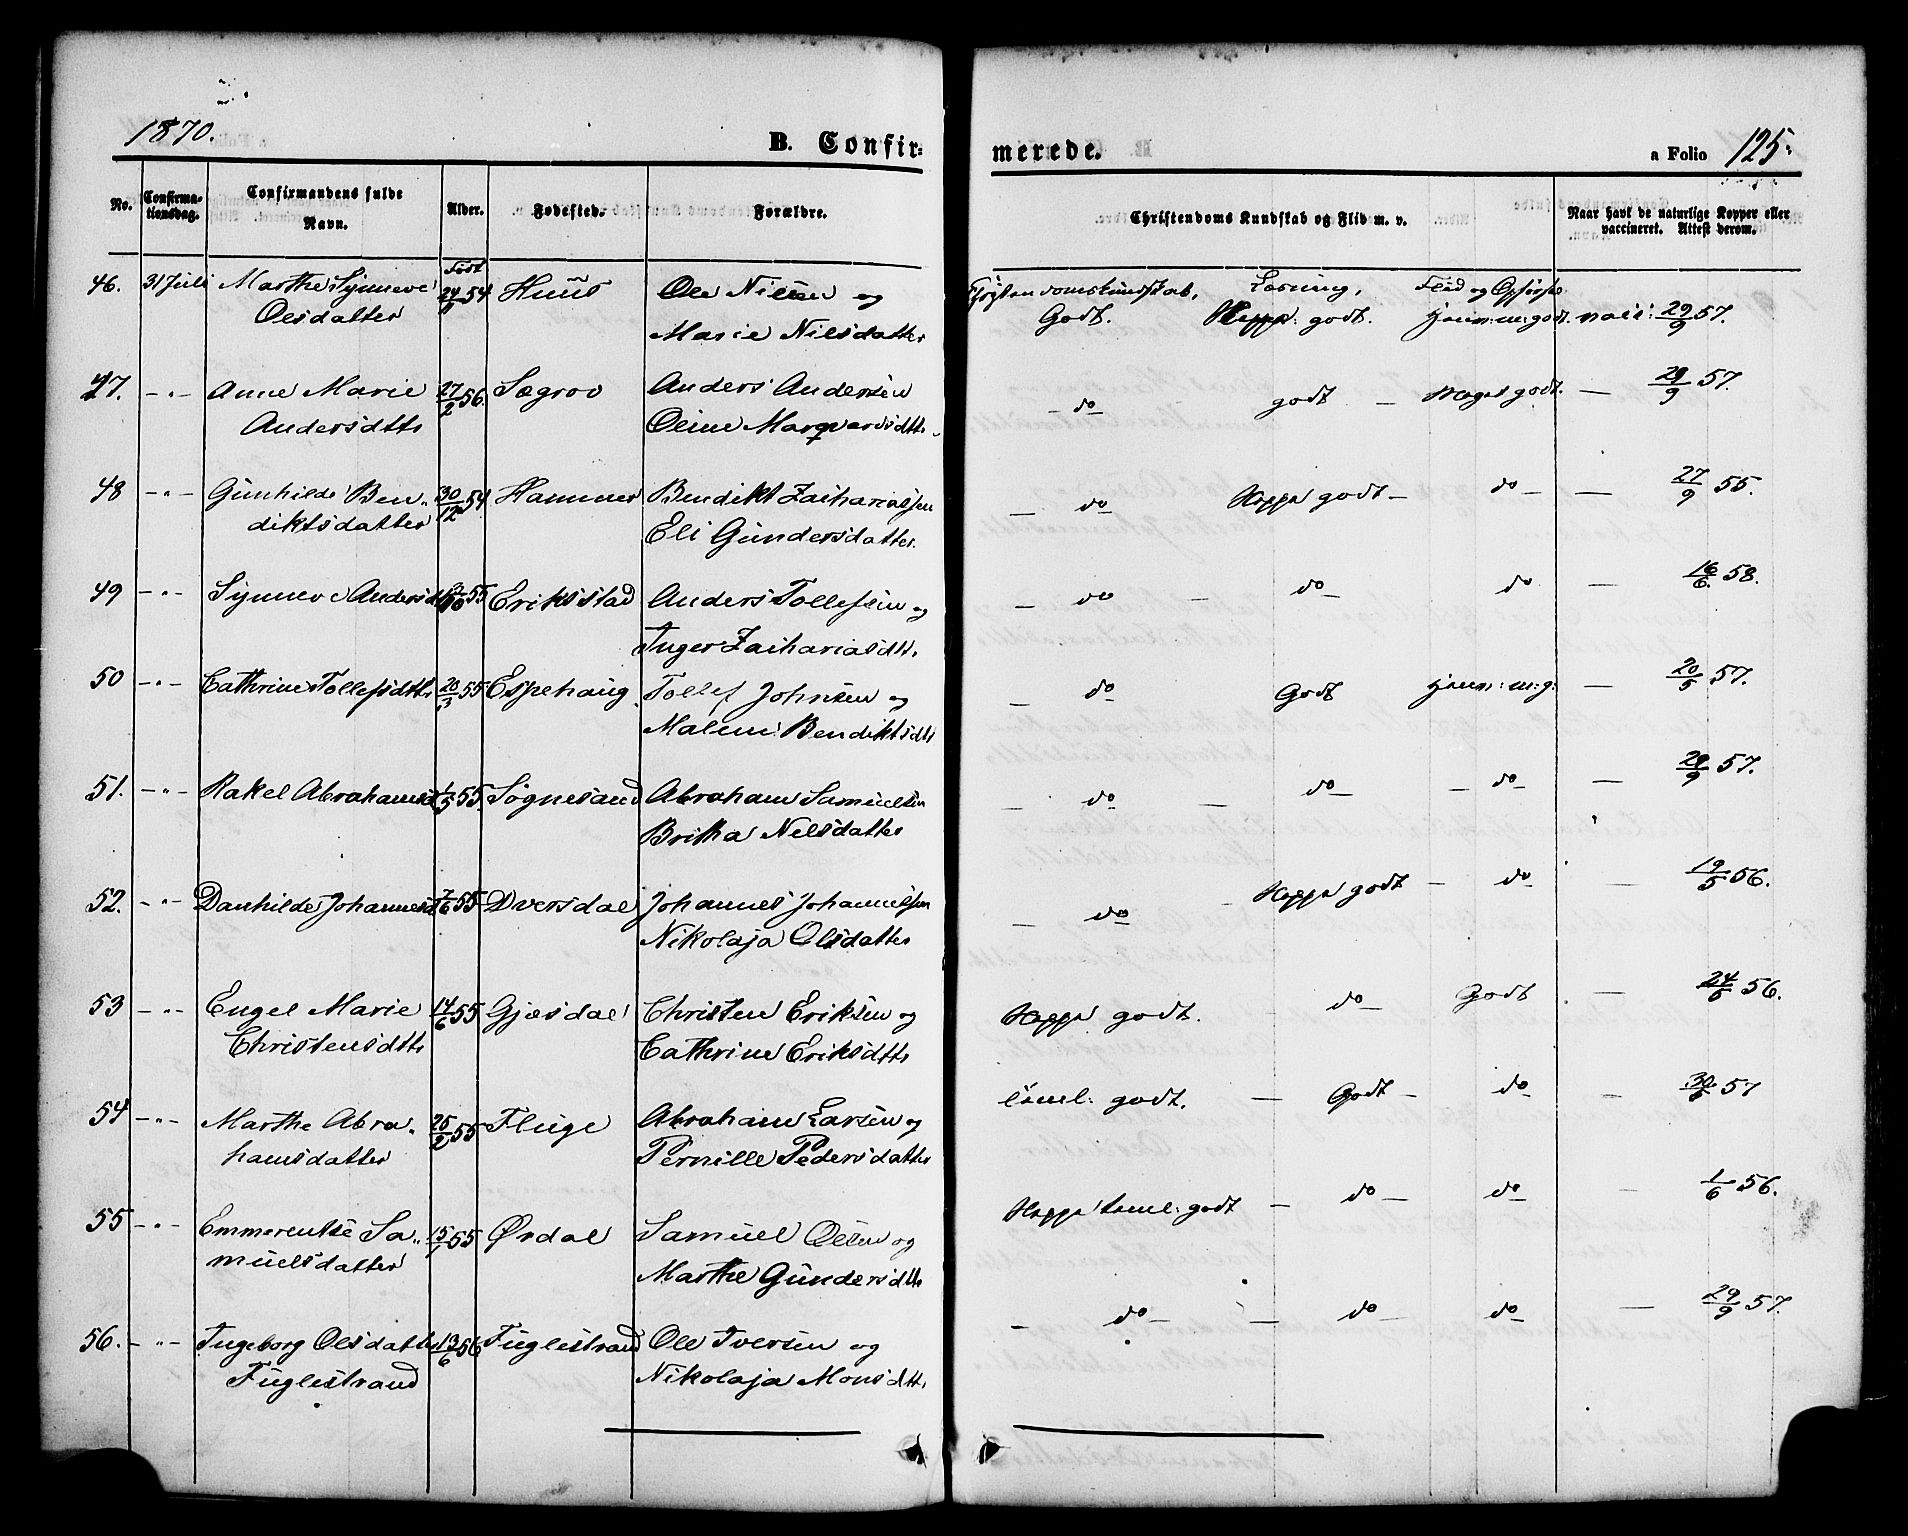 1870.
B. Confirmerede.
a Folio 125.
No. Confirmationsdag. Confirmandens fulde Navn. Alder. Fødested. Forældre. Christendoms Kundskab og Flid m. v. Naar havt de naturlige Kopper eller vaccineret. Attest derom.
Født
46. 31 Juli Marthe Synneve 24/9 54 Huus Ole Nilsen og Læsning, Flid og Opførsel
Olsdatter Marie Nilsdatter Godt. godt. jevn: m: godt. 29/9 57.
47. -"- Anne Marie 27/2 56. Sægrov Anders Andersen do godt Meget godt. — 29/9 57.
Andersdttr Oline Marqvardsdttr
48 -"- Gunhilde Ben- 30/12 54 Hammer Bendikt Zachariassen do godt do — 27/9 55.
diktsdatter Eli Gundersdatter.
49 -"- Synneve Andersd 55 Eriksstad Anders Tollefsen og do do do — 16/6 58.
Inger Zachariasdtr.
50 -"- Cathrine Tollefsdttr 20/3 55 Espehaug Tollef Johnsen og do Godt jevn: m: g: — 20/5 57.
Malene Bendiktsdtr
51. -"- Rakel Abrahamsd 1/5 55. Søgnesand Abraham Samuelsen do do do — 29/9 57.
Britha Nilsdatter
52. -"- Danhilde Johannesd 7/6 55 Dversdal Johannes Johannessen do godt do — 19/5 56.
Nikolaja Olsdatter
53 -"- Engel Marie 14/6 55 Gjæsdal Christen Eriksen og godt. do Godt — 24/5 56.
Christensdttr Cathrine Eriksdttr
54 -"- Marthe Abra- 25/2 55 Fluge Abraham Larsen og godt. — Godt do — 57
hamsdatter Pernille Pedersdatter
55 -"- Emmerentse Sa- 15/1 55 Ørdal Samuel Olsen og godt — do do — 1/6 56.
muelsdatter Marthe Gundersdttr
56. -"- Ingeborg Olsdatter 13/6 56 Fuglestrand Ole Iversen og do do do — 29/9 57.
Fuglestrand Nikolaja Monsdttr